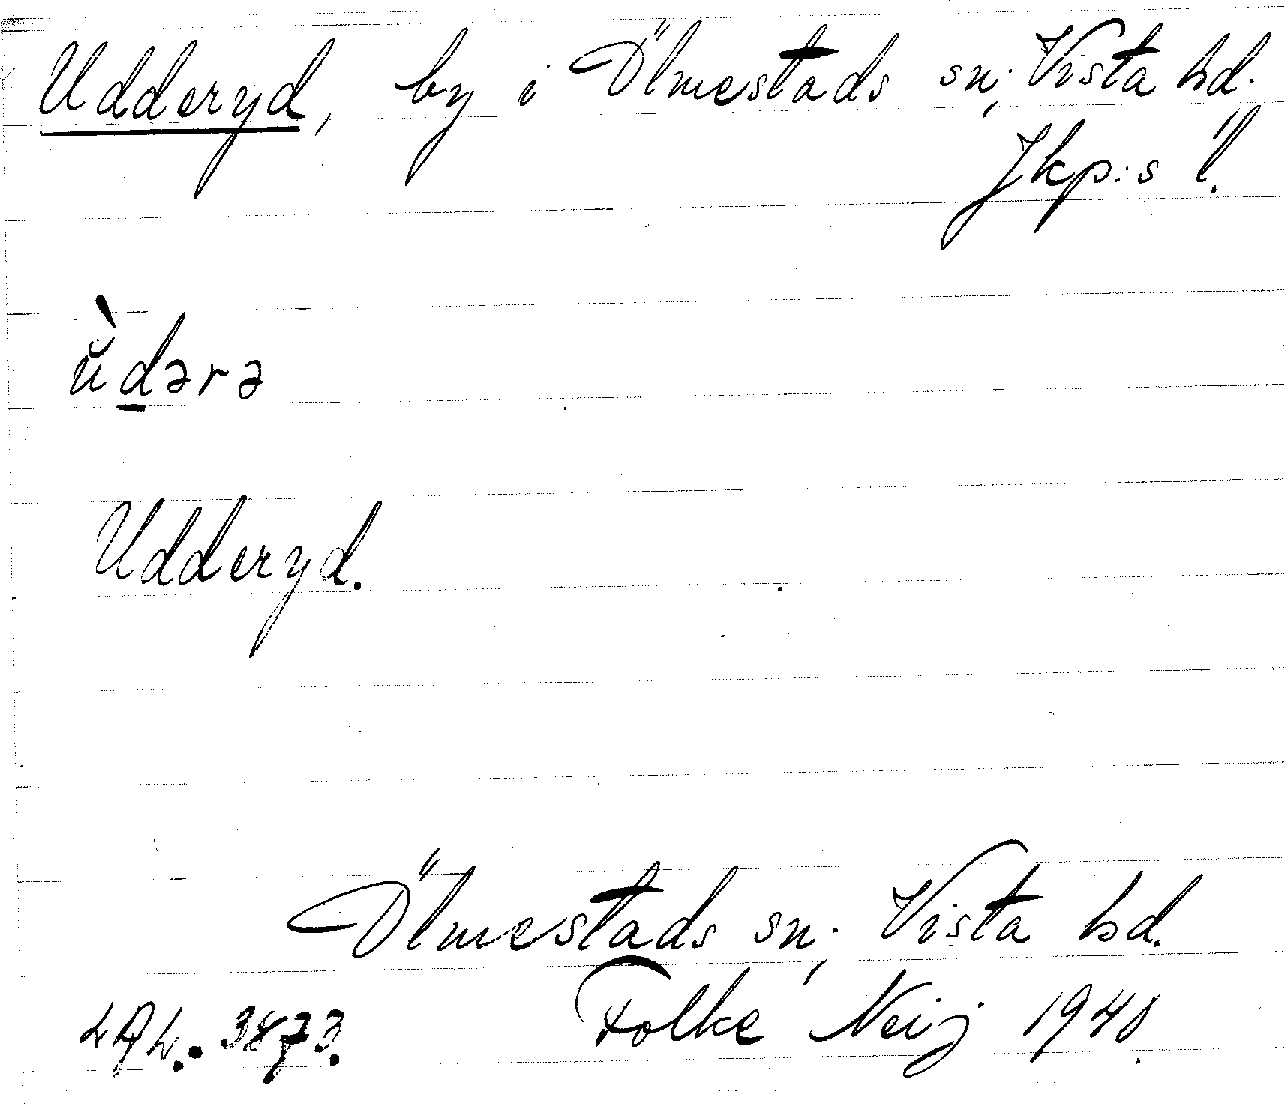 Udderyd, by i Ölmestads sn, Vista hd.
Jkp:s l.
ŭ̀d̲ərə
Udderyd.
Ölmestads sn, Vista hd.
Folke Neij 1940.
LAL. 3873.